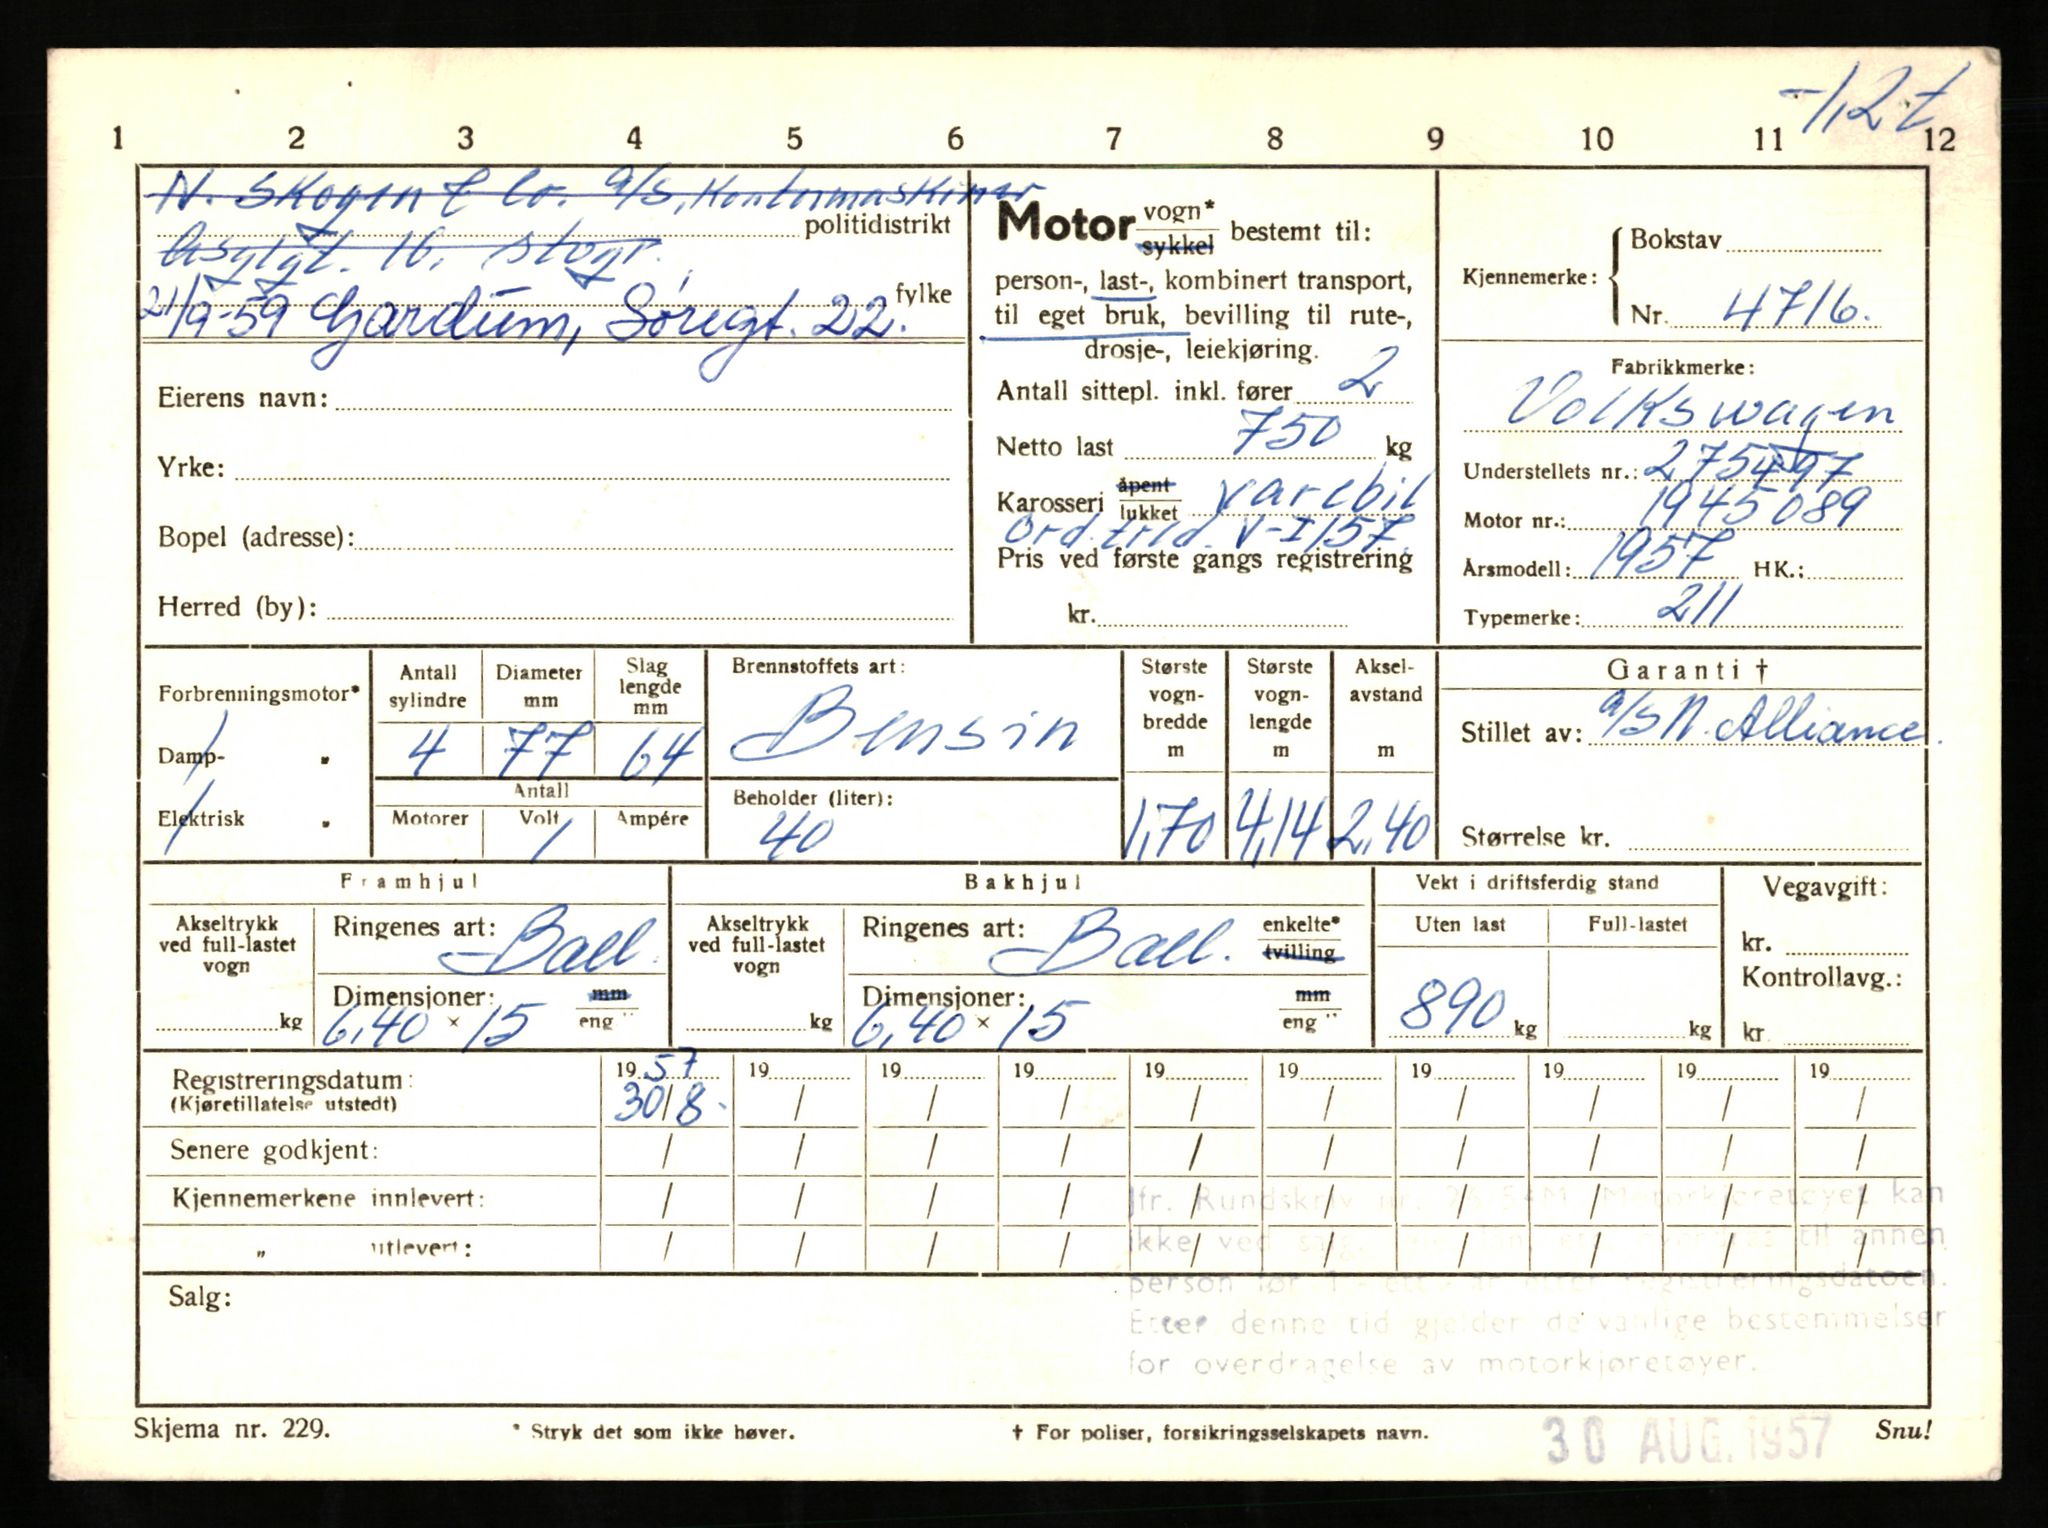 -1,2t
1 2 3 4 5 6 7 8 9 10 11 12
N. Skogen & Co. a/s, Kontormaskiner
politidistrikt
16, Stvgr.
fylke
21/9-59 Gardum, Søregt. 22.
Eierens navn:
Yrke:
Bopel (adresse):
Herred (by):
Motor vogn* sykkel bestemt til:
person-, last-, kombinert transport,
til eget bruk, bevilling til rute-,
drosje-, leiekjøring.
Antall sittepl. inkl. fører 2
Netto last 750 kg
Karosseri åpent lukket varebil
Ord. tild. V-I/57.
Pris ved første gangs registrering
kr.
Kjennemerke: Bokstav
Nr. 4716.
Fabrikkmerke:
Volkswagen
Understellets nr.: 275497
Motor nr.: 1945089
Årsmodell: 1957 HK.:
Typemerke: 211
Forbrenningsmotor*
Damp- "
Elektrisk "
Antall sylindre Diameter mm Slag lengde mm
4 77 64
Antall
Motorer Volt Ampére
Brennstoffets art:
Bensin
Beholder (liter):
40
Største vogn-bredde m Største vogn-lengde m Aksel-avstand m
1,70 4,14 2,40
Garanti †
Stillet av: a/s N. Alliance.
Størrelse kr.
Framhjul
Akseltrykk ved full-lastet vogn
kg
Ringenes art: Ball.
Dimensjoner: mm
6,40 × 15 eng "
Bakhjul
Akseltrykk ved full-lastet vogn
kg
Ringenes art: Ball. enkelte* tvilling
Dimensjoner: mm
6,40 × 15 eng "
Vekt i driftsferdig stand
Uten last Full-lastet
890 kg kg
Vegavgift:
kr.
Kontrollavg.:
kr.
Registreringsdatum: 1957 19 19 19 19 19 19 19 19 19
(Kjøretillatelse utstedt) 30/8. / / / / / / / / /
Senere godkjent: / / / / / / / / / /
Kjennemerkene innlevert: / / / / / / / / / /
" utlevert: / / / / / / / / / /
Jfr. Rundskriv nr. Motorkjøretøyet kan
ikke ved salg, til annen
person før 1 - ett - år etter registreringsdatoen.
Etter denne tid gjelder de vanlige bestemmelser
for overdragelse av motorkjøretøyer.
Salg:
Skjema nr. 229. * Stryk det som ikke høver. † For poliser, forsikringsselskapets navn. Snu!
30 AUG. 1957